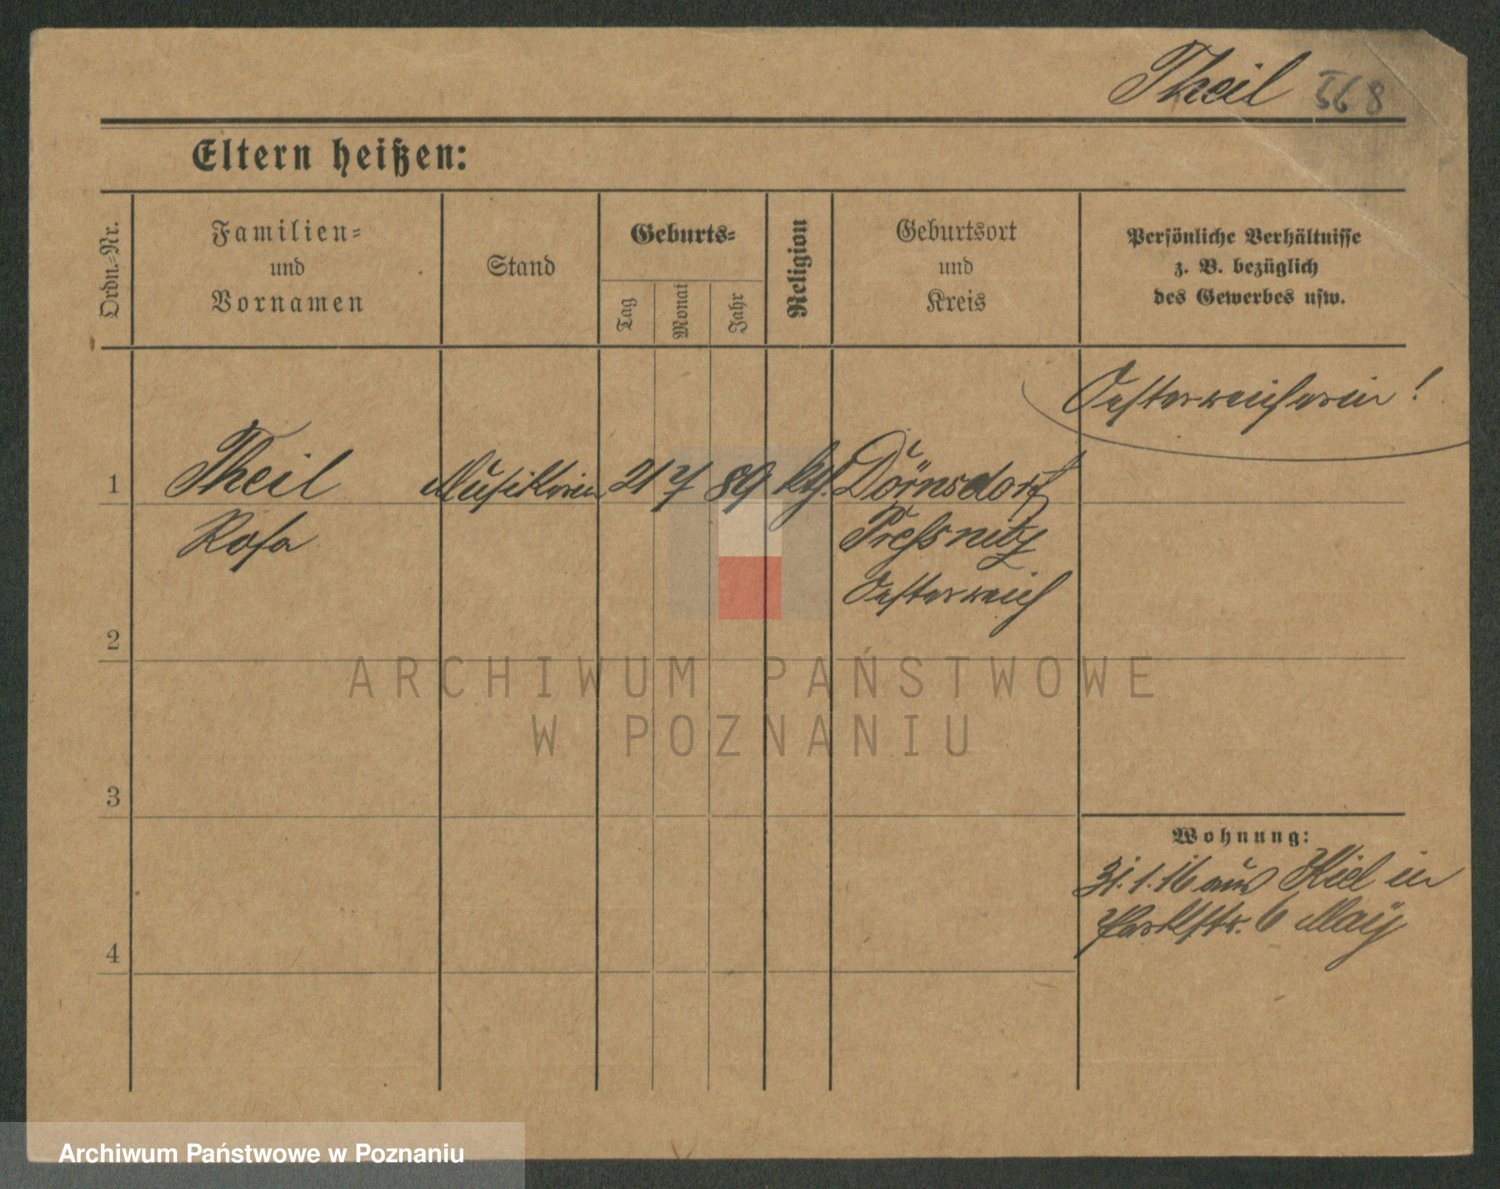 Theil 568
Eltern heißen:
Ordn.-Nr.
Familien-
und
Vornamen
Stand
Geburts-
Tag
Monat
Jahr
Religion
Geburtsort
und
Kreis
Persönliche Verhältnisse
z. B. bezüglich
des Gewerbes usw.
Oesterreicherin!
1 Theil Musikerin 21 7 89 kth. Dörnsdorf
Rosa Pressnitz
Oesterreich
2
ARCHIWUM PAŃSTWOWE
W POZNANIU
3
Wohnung:
31.1.16 aus Kiel in
Parkstr. 6 May
4
Archiwum Państwowe w Poznaniu